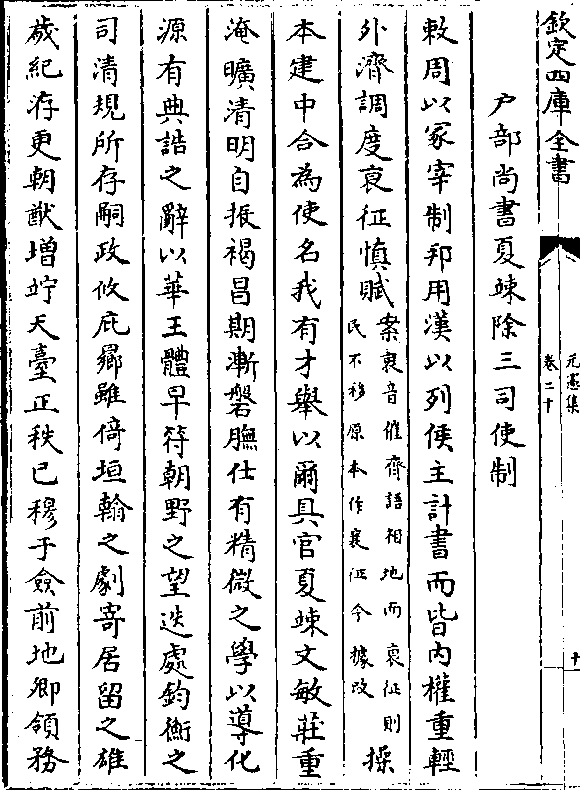 欽定四庫全書
元憲集
卷二十
十
戶部尚書夏竦除三司使制
敕周以冢宰制邦用漢以列侯主計書而皆內權重輕
外濟調度裒征慎賦
案裒音催齊語相地而裒征則
民不移原本作襄征今據改
操
本建中合為使名我有才舉以爾具官夏竦文敏莊重
淹曠清明自振褐昌期漸磐膴仕有精微之學以導化
源有典誥之辭以華王體早符朝野之望迭處鈞衡之
司清規所存嗣政攸庇曏雖倚垣翰之劇寄居留之雄
歲紀洊更朝猷增竚天臺正秩已穆于僉前地卿領務